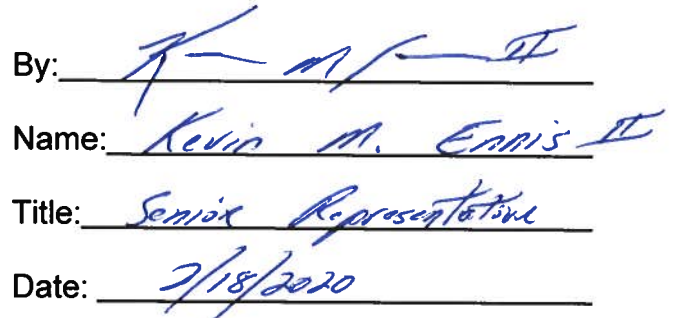 By: K M E II
Name: Kevin M. Ennis II
Title: Senior Representative
Date: 2/18/2020